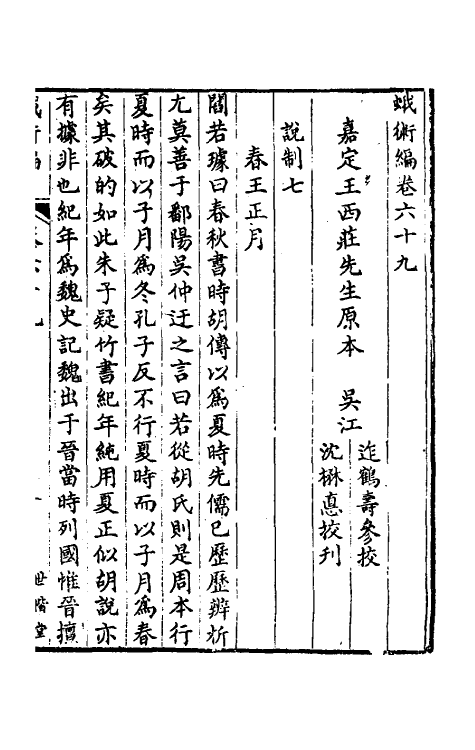 蛾術編卷六十九
嘉定王西莊先生原本　吳江
迮鶴壽參挍
沈楙悳挍刊
說制七
春王正月
閻若璩曰春秋書時胡傳以爲夏時先儒已歷歷辨析
尢莫善于鄱陽吳仲迂之言曰若從胡氏則是周本行
夏時而以子月爲冬孔子反不行夏時而以子月爲春
矣其破的如此朱子疑竹書紀年純用夏正似胡說亦
有據非也紀年爲魏史記魏出于晉當時列國惟晉擅
世楷堂